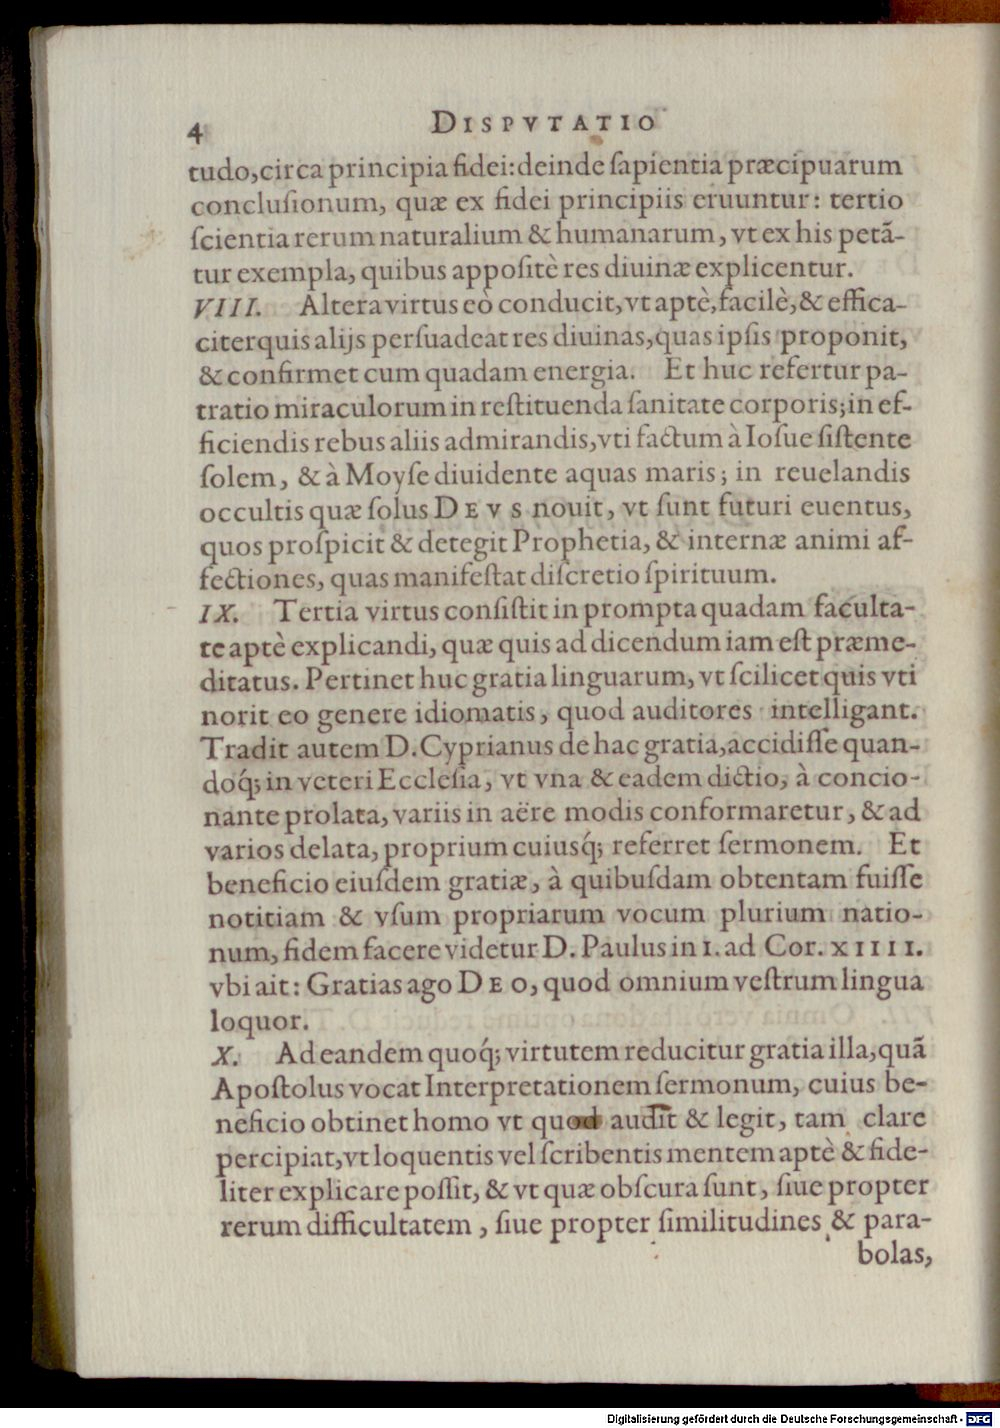 4 DISPVTATIO
tudo, circa principia fidei: deinde ſapientia præcipuarum
concluſionum, quæ ex fidei principiis eruuntur: tertio
ſcientia rerum naturalium & humanarum, vt ex his petã-
tur exempla, quibus appoſitè res diuinæ explicentur.
VIII. Altera virtus eò conducit, vt aptè, facilè, & effica-
citer quis alijs perſuadeat res diuinas, quas ipſis proponit,
& confirmet cum quadam energia. Et huc refertur pa-
tratio miraculorum in reſtituenda ſanitate corporis; in ef-
ficiendis rebus aliis admirandis, vti factum à Ioſue ſiſtente
ſolem, & à Moyſe diuidente aquas maris; in reuelandis
occultis quæ ſolus DEVS nouit, vt ſunt futuri euentus,
quos proſpicit & detegit Prophetia, & internæ animi af-
fectiones, quas manifeſtat diſcretio ſpirituum.
IX. Tertia virtus conſiſtit in prompta quadam faculta-
te aptè explicandi, quæ quis ad dicendum iam eſt præme-
ditatus. Pertinet huc gratia linguarum, vt ſcilicet quis vti
norit eo genere idiomatis, quod auditores intelligant.
Tradit autem D. Cyprianus de hac gratia, accidiſſe quan-
doq́; in veteri Eccleſia, vt vna & eadem dictio, à concio-
nante prolata, variis in aëre modis conformaretur, & ad
varios delata, proprium cuiusq́; referret ſermonem. Et
beneficio eiuſdem gratiæ, à quibuſdam obtentam fuiſſe
notitiam & vſum propriarum vocum plurium natio-
num, fidem facere videtur D. Paulus in I. ad Cor. XIIII.
vbi ait: Gratias ago DEO, quod omnium veſtrum lingua
loquor.
X. Ad eandem quoq́; virtutem reducitur gratia illa, quã
Apoſtolus vocat Interpretationem ſermonum, cuius be-
neficio obtinet homo vt quod audit & legit, tam clare
percipiat, vt loquentis vel ſcribentis mentem aptè & fide-
liter explicare poſſit, & vt quæ obſcura ſunt, ſiue propter
rerum difficultatem, ſiue propter ſimilitudines & para-
bolas,
Digitalisierung gefördert durch die Deutsche Forschungsgemeinschaft - DFG